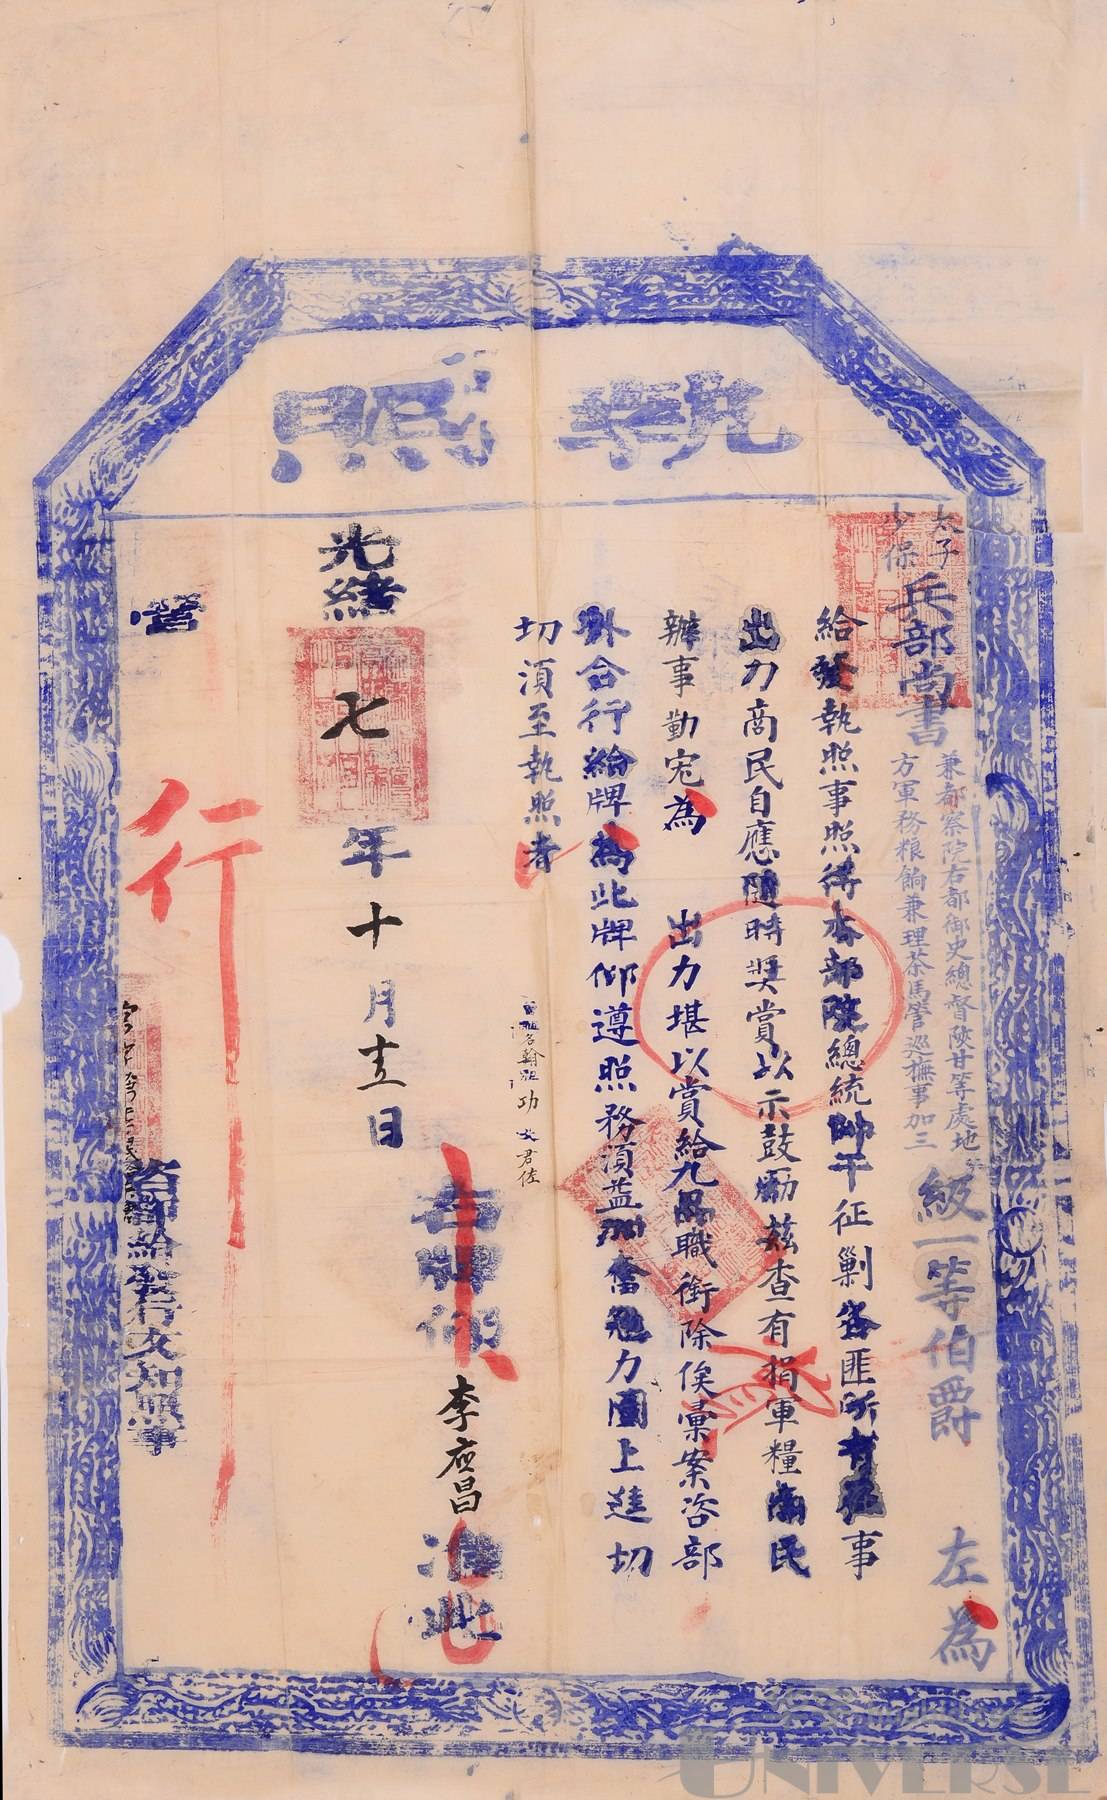 執照
太子少保
兵部尚書
兼都察院右都御史總督陝甘等處地方軍務粮餉兼理茶馬管巡撫事加三
級一等伯爵 左 為
給發執照事照得本部 總統帥干征剿 匪所有 事
出力商民自應隨時奬賞以示鼓勵茲查有捐軍糧 民
辦事勤 為 出力堪以賞給九品職銜除俟彙案咨部
外合行給牌為此牌仰遵照務須益加奮勉力圖上達切
切須至執照者
功 君佐
右牌仰 李应昌 准此
光緒七年十月 日
行
營
咨部給發行文知照事
UNIVERSE